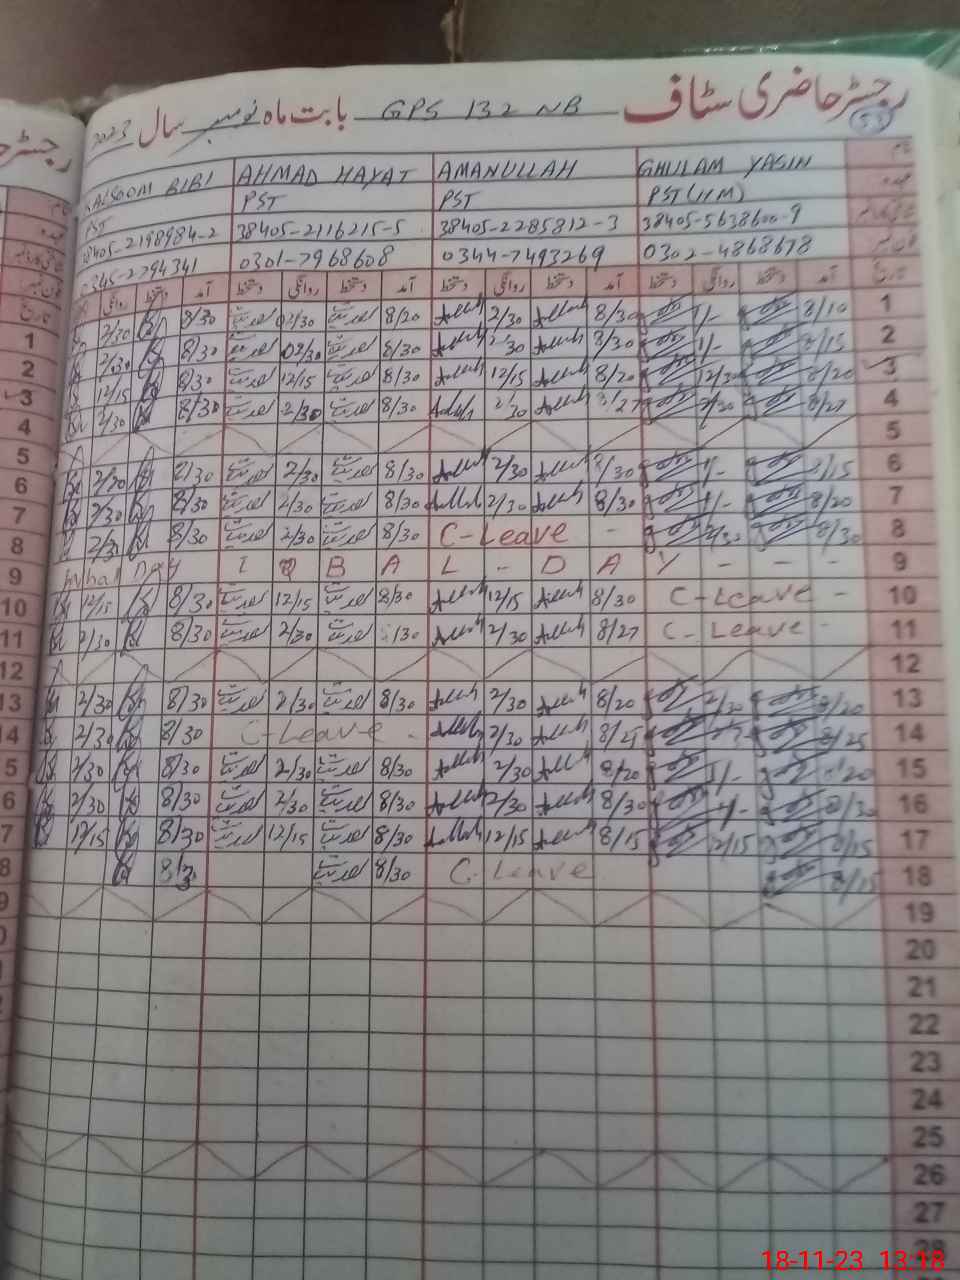 رجسٹر حاضری سٹاف GPS 132 NB بابت ماہ نومبر سال 2023
GHULAM YASIN AMANULLAH AHMAD HAYAT KALSOOM BIBI
PST(HM) PST PST PST
38405-5638600-9 38405-2285812-3 38405-2116215-5 38405-2198984-2
0302-4868678 0344-7493269 0301-7968608 0345-2794341
تاریخ آمد دستخط روانگی دستخط آمد دستخط روانگی دستخط آمد دستخط روانگی دستخط آمد دستخط روانگی
1 8/10 1/- 8/30 2/30 8/20 02/30 8/30 2/30
2 8/15 1/- 8/30 2/30 8/30 02/30 8/30 2/30
3 8/20 12/30 8/20 12/15 8/30 12/15 8/30 12/15
4 8/27 2/30 8/27 2/30 8/30 2/30 8/30 2/30
5
6 8/15 1/- 8/30 2/30 8/30 2/30 8/30 2/30
7 8/20 1/- 8/30 2/30 8/30 2/30 8/30 2/30
8 8/30 2/30 C-Leave - 8/30 2/30 8/30 2/30
9 Iqbal Day I Q B A L - D A Y - - -
10 C-Leave - 8/30 12/15 8/30 12/15 8/30 12/15
11 C-Leave - 8/27 2/30 8/30 2/30 8/30 2/30
12
13 8/20 2/30 8/20 2/30 8/30 2/30 8/30 2/30
14 8/25 8/25 2/30 C-Leave - 8/30 2/30
15 8/20 1/- 8/20 2/30 8/30 2/30 8/30 2/30
16 8/30 1/- 8/30 2/30 8/30 2/30 8/30 2/30
17 8/15 12/15 8/15 12/15 8/30 12/15 8/30 12/15
18 8/15 C-Leave 8/30 8/3
19
20
21
22
23
24
25
26
27
28
18-11-23 13:18